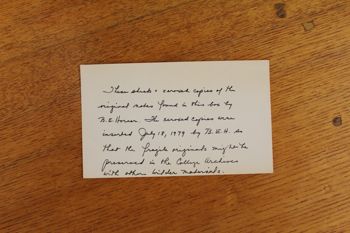 These sheets & xeroxed copies of the
original notes found in this box by
B.E. The xeroxed copies were
inserted July 18, 1979 by B.E.H. so
that the fragile originals might be
preserved in the College Archives
with other materials.